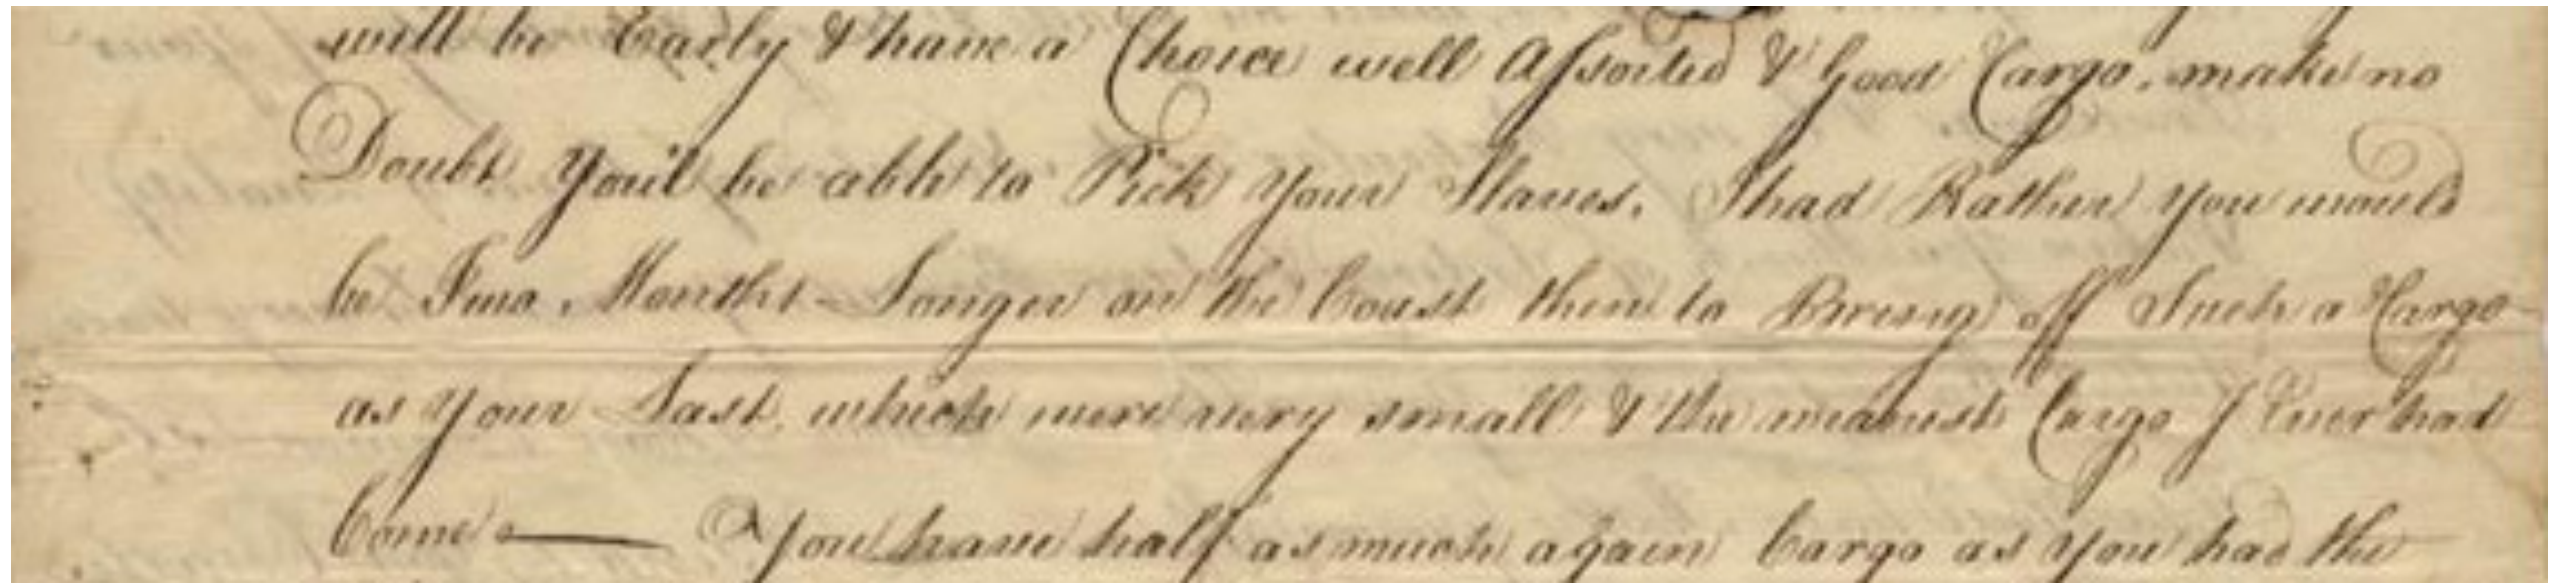 will be Early & have a Choice well Assorted & Good Cargo, make no
Doubt You'l be able to Pick Your Slaves. I had Rather You would
be Two Months Longer on the Coast then to Bring off Such a Cargo
as Your Last, which were very small & the meanest Cargo I Ever had
Come — You have half as much again Cargo as You had the